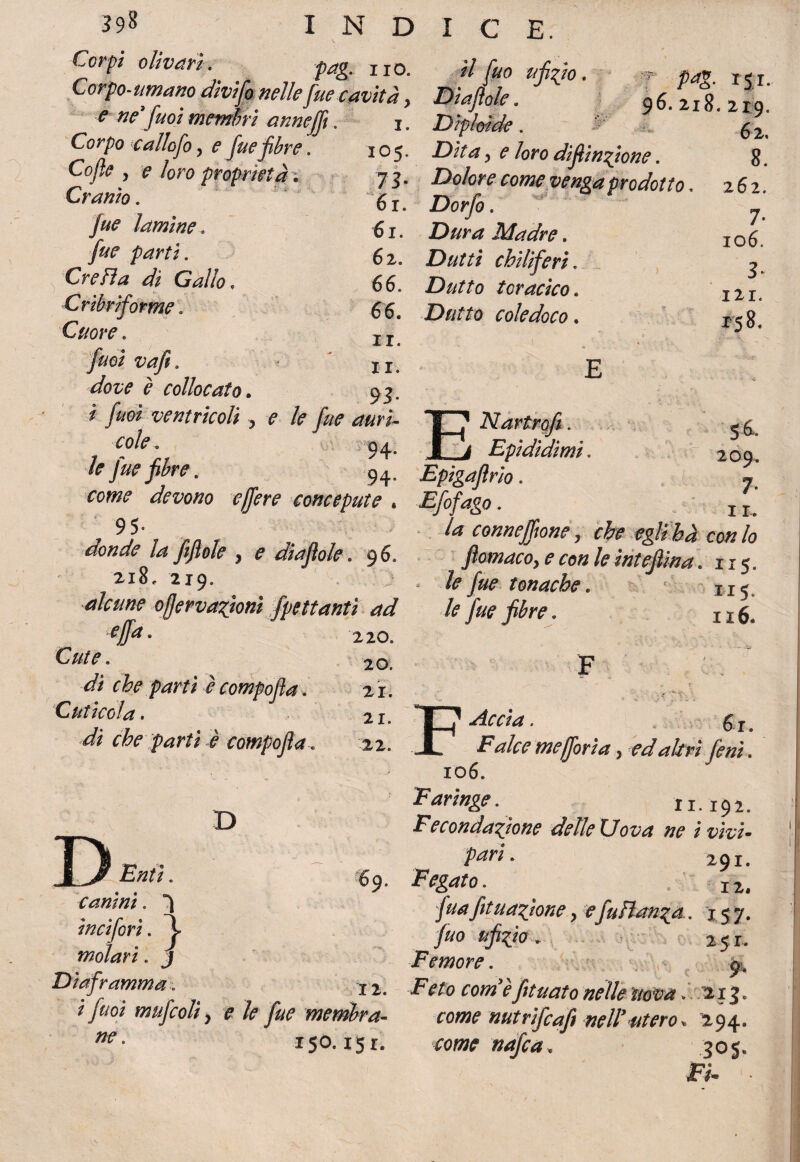 398 INDICE.
Corpi olivari. pag. 110.
Corpo-umano diviſo nelle ſue cavità,
e ne' ſuoi membri anneſſi. 1.
Corpo calloſo, e ſue fibre. 105.
Coſte, e loro proprietà. 73.
Cranio. 61.
ſue lamine. 61.
ſue parti. 62.
Creſta di Gallo. 66.
Cribriforme. 66.
Cuore. 11.
ſuoi vaſi. 11.
dove è collocato. 93.
i ſuoi ventricoli, e le ſue auri-
cole. 94.
le ſue fibre. 94.
come devono eſſere concepute.
95.
donde la ſiſtole, e diaſtole. 96.
218. 219.
alcune oſſervazioni ſpettanti ad
eſſa. 220.
Cute. 20.
di che parti è compoſta. 21.
Cuticola. 21.
di che parti è compoſta. 22.
D
DEnti. 69.
canini. }
inciſori. }
molari. }
Diaframma. 12.
i ſuoi muſcoli, e le ſue membra-
ne. 150. 151.
il ſuo ufizio. pag. 151.
Diaſtole. 96. 218. 219.
Diploide. 62.
Dita, e loro diſtinzione. 8.
Dolore come venga prodotto. 262.
Dorſo. 7.
Dura Madre. 106.
Dutti chiliferi. 3.
Dutto toracico. 121.
Dutto coledoco. 158.
E
ENartroſi. 56.
Epididimi. 209.
Epigaſtrio. 7.
Eſofago. 11.
la conneſſione, che egli hà con lo
ſtomaco, e con le inteſtina. 115.
le ſue tonache. 115.
le ſue fibre. 116.
F
FAccia. 61.
Falce meſſoria, ed altri ſeni.
106.
Faringe. 11. 192.
Fecondazione delle Uova ne i vivi-
pari. 291.
Fegato. 12.
ſua ſituazione, e ſuſtanza. 157.
ſuo ufizio. 251.
Femore. 9.
Feto com'è ſituato nelle uova. 213.
come nutriſcaſi nell' utero. 294.
come naſca. 305.
Fi-